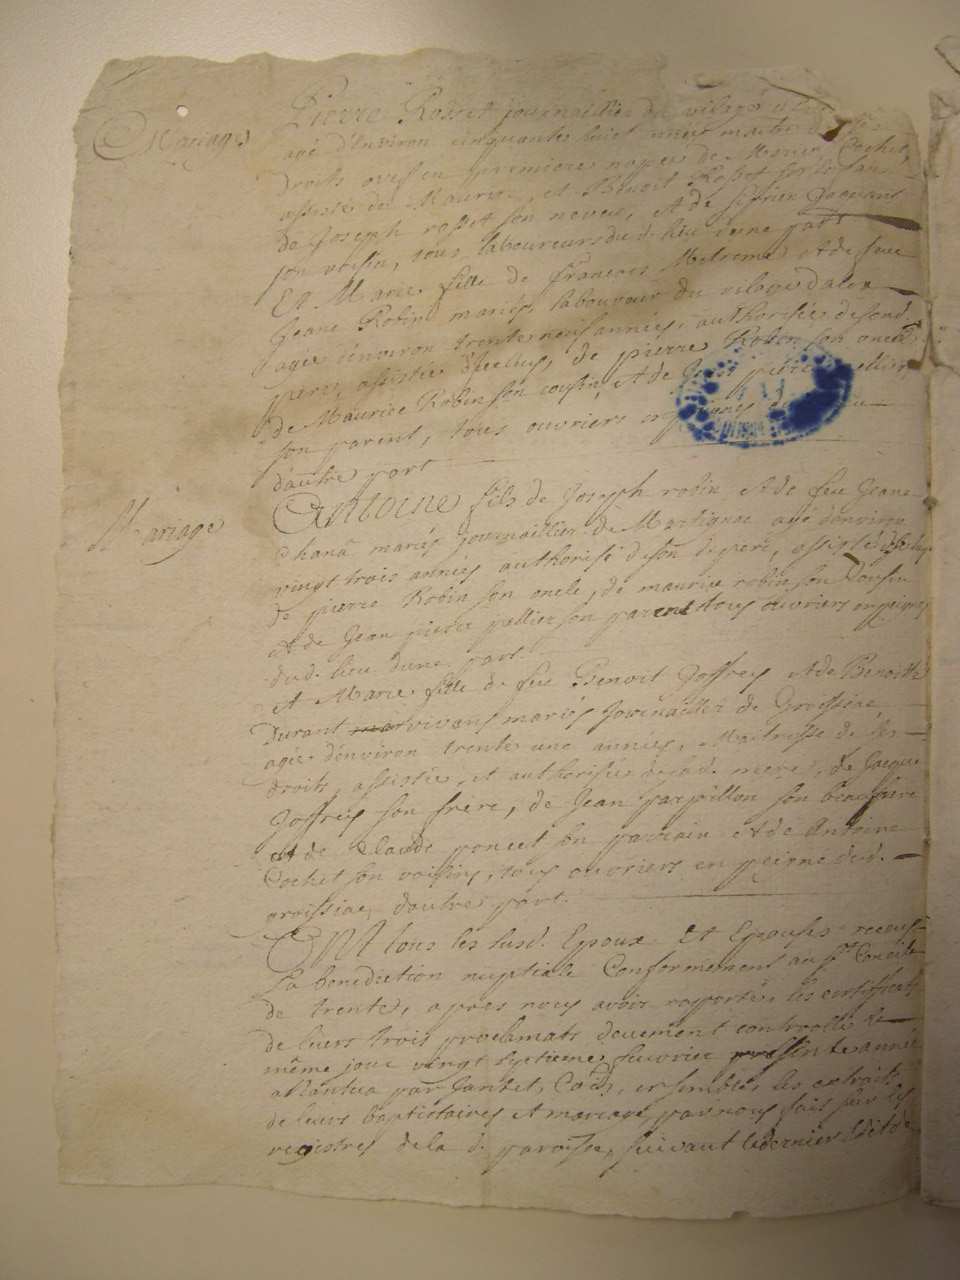 Mariage
Pierre Rosset journaillier du vilage
agé d'Environ cinquante huit années maitre
droits oves en premieres nopces de Marie Cochet,
assisté de Maurice, et Benoit Rosset
de Joseph rosset son neveu, et de
son voisin, tous laboureurs du d. lieu d'une part
Et Marie fille de francois Metremed et de feue
Jeane Robin mariés, laboureur du vilage dalex
agée d'environ trente neuf années, authorisée de son d.
pere, assistée d'iceluy, de pierre Robin son oncle
de Maurice Robin son cousin, et de Jean pierre pellier
son parent, tous ouvriers en peignes
d'autre part
Mariage
Antoine fils de Joseph robin et de feu Jeane
chanā mariés journaillier de Martignac agé denviron
vingt trois années authorisé de son d. pere, assisté
de pierre Robin son oncle, de maurice robin son Cousin
et de Jean pierre pellier son parent tous ouvriers en peignes
du d. lieu dune part.
et Marie fille de feu Benoit Joffrey et de Benoitte
Durant vivans mariés Journaillier de Groissiac,
agée denviron trente une années, Maitresse de ses
droits, assistée, et authorisée de la d. mere, de Jacque
Joffrey son frere, de Jean parpillon son beaufrere
et de Claude poncet son parrain et de Antoine
Cochet son voisin, tous ouvriers en peigne du d.
groissiac, d'autre part.
Ont tous les susd. Epoux et Epouses receus
La benediction nuptiale Conformement au st. Concile
de trente, apres nous avoir raporté, les certifficats
de leurs trois proclamats deuement controllé le
même jour vingt septieme fevrier presente année
a Nantua par Jantet, Coōs, ensemble, les extraits
de leurs baptistaires et mariage, par nous fait sur les
registres de la d. paroisse, suivant le dernier Edit de